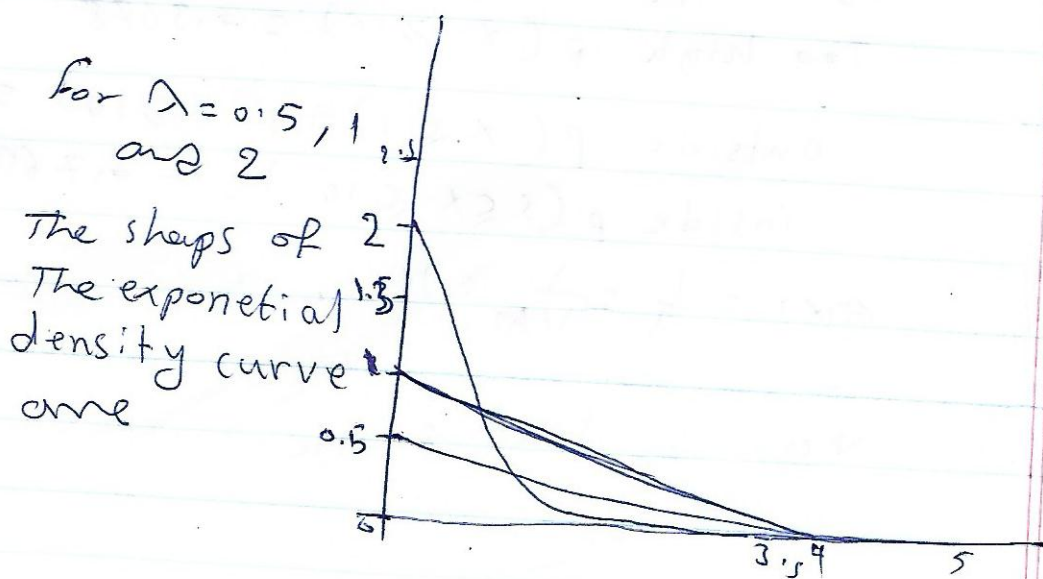 for λ = 0.5, 1
and 2
The shaps of
The exponetial
density curve
are
2.5
2
1.5
1
0.5
0
3.5 4 5